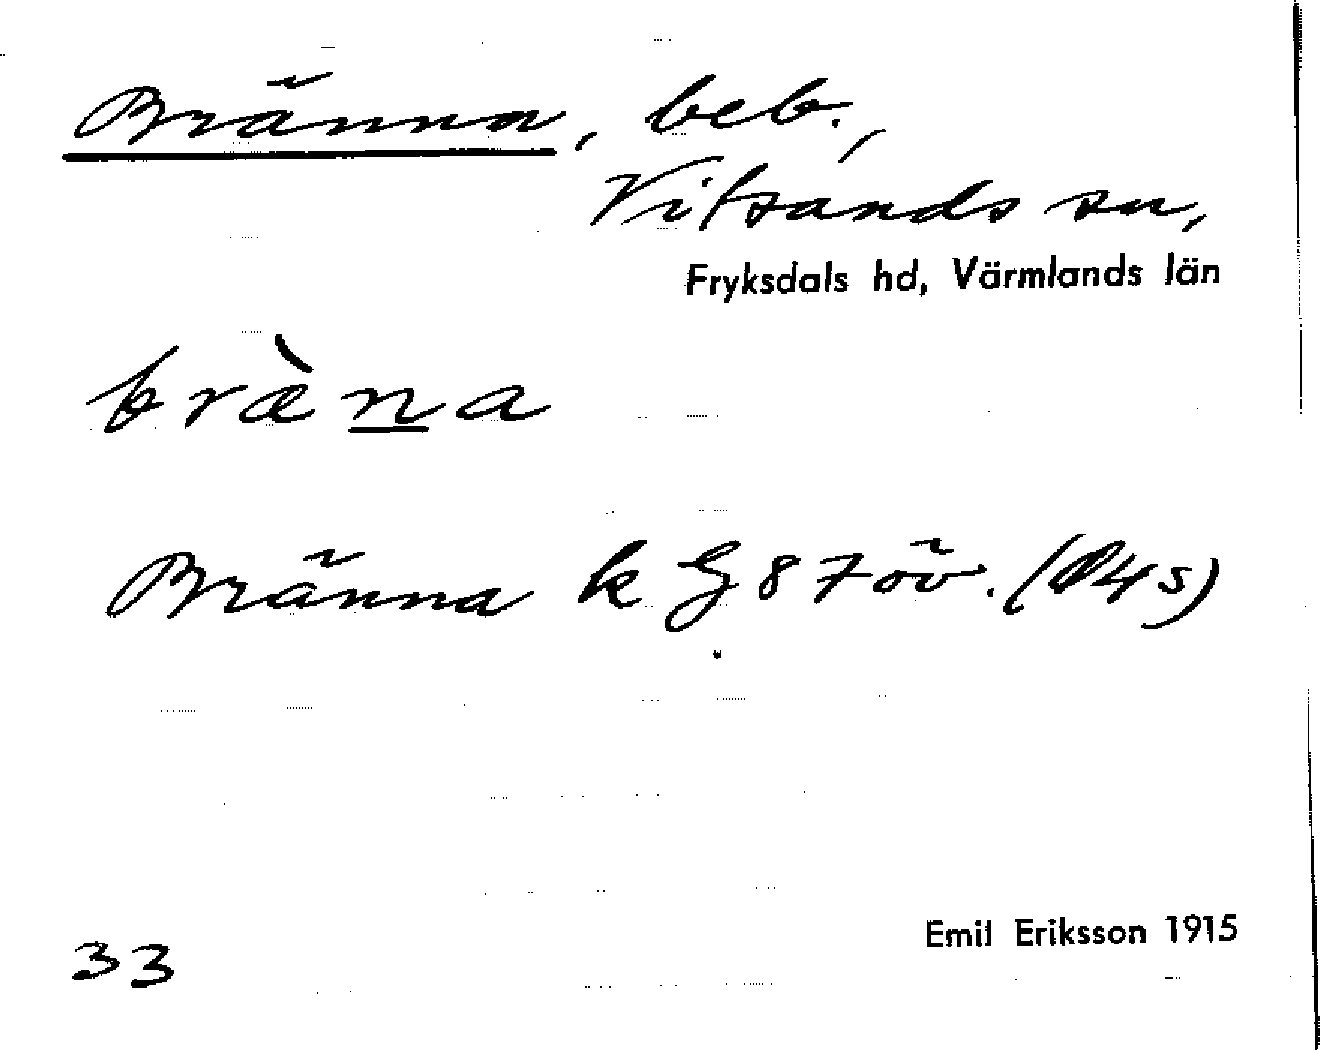 Bränna, beb.,
Vitsands sn,
Fryksdals hd, Värmlands län
bræ̀na
Bränna k G 87 öv. (P4s)
33
Emil Eriksson 1915